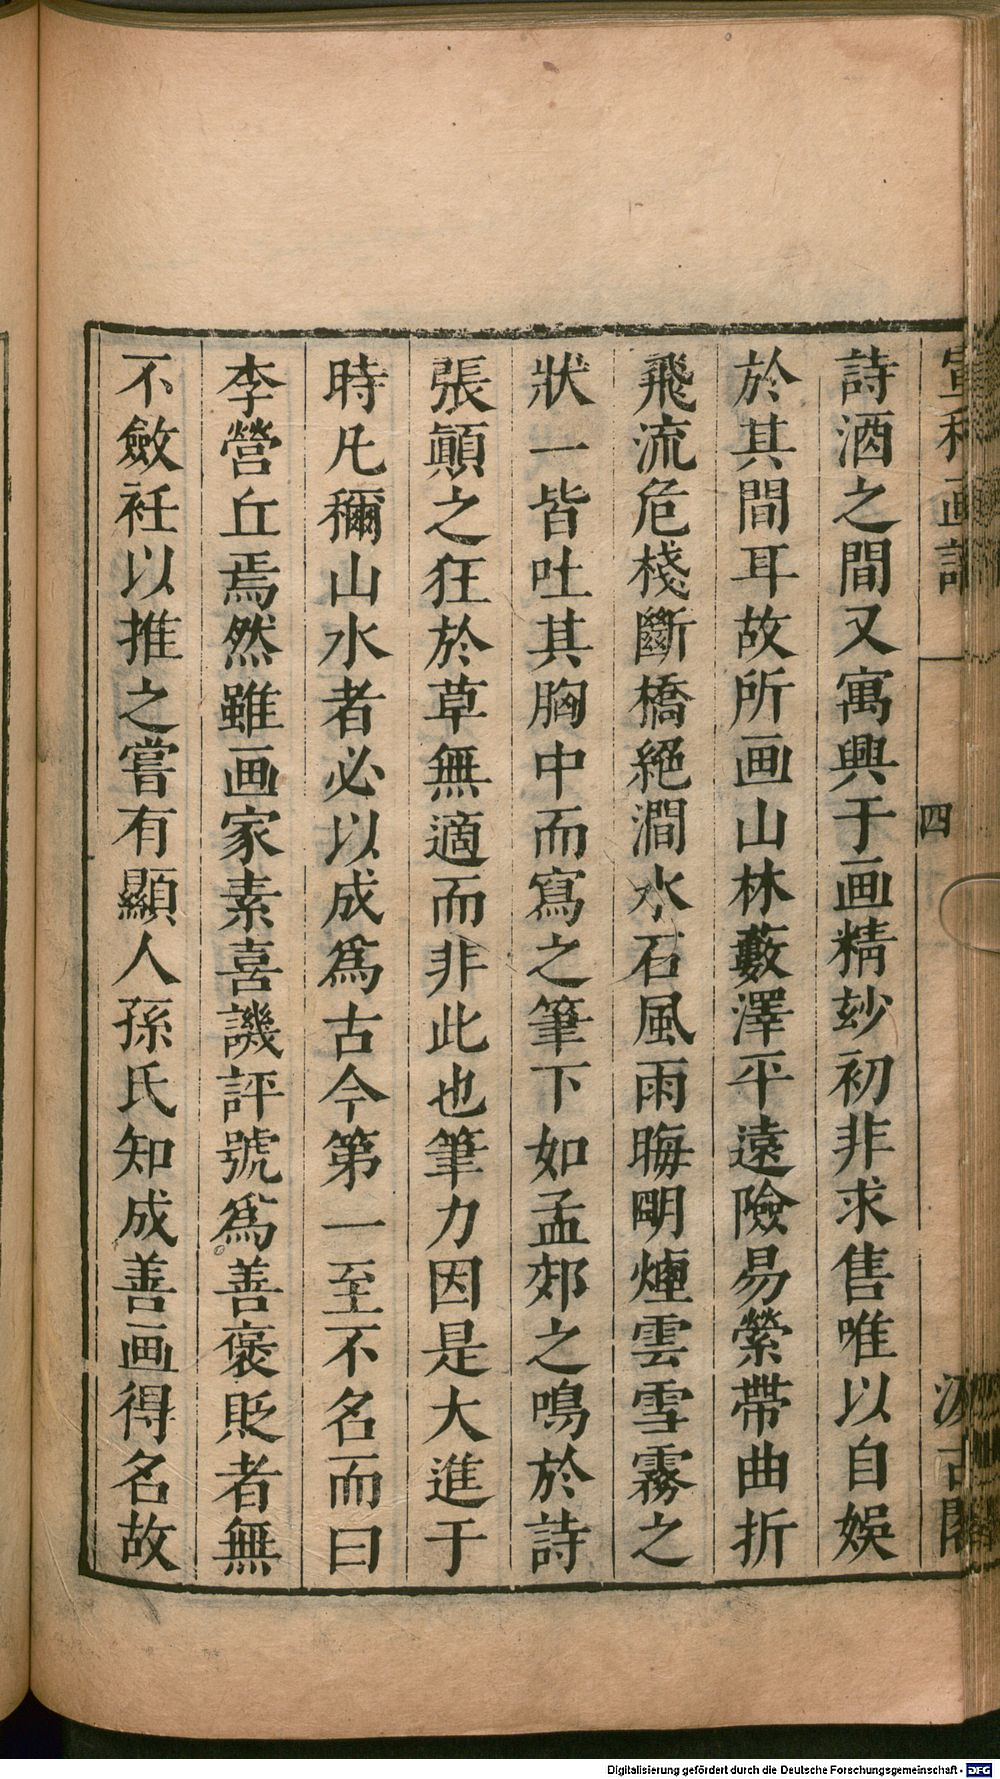 宣和画譜
四
汲古閣
詩酒之間又寓興于画精玅初非求售唯以自娛
於其間耳故所画山林藪澤平遠險易縈帶曲折
飛流危棧斷橋絕澗水石風雨晦明煙雲雪霧之
狀一皆吐其胸中而寫之筆下如孟郊之鳴於詩
張顛之狂於草無適而非此也筆力因是大進于
時凡稱山水者必以成爲古今第一至不名而曰
李營丘焉然雖画家素喜譏評號爲善褒貶者無
不斂衽以推之嘗有顯人孫氏知成善画得名故
Digitalisierung gefördert durch die Deutsche Forschungsgemeinschaft - DFG